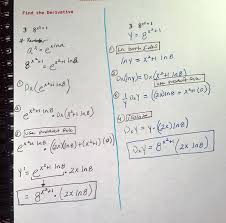 Find the Derivative
3 8^(x²+1)
* Remember
a^x = e^(x ln a)
8^(x²+1) = e^(x²+1 ln 8)
① Dx(e^(x²+1 ln 8))
②
e^(x²+1 ln 8) · Dx(x²+1 ln 8)
③ Use Product Rule
e^(x²+1 ln 8) · (2x)(ln 8) + (x²+1)(0)
y' = e^(x²+1 ln 8) · 2x ln 8
= 8^(x²+1) · (2x ln 8)
3 8^(x²+1)
y = 8^(x²+1)
① Ln Both Sides
ln y = x²+1 ln 8
② Dx(ln y) = Dx(x²+1 ln 8)
Use Product Rule
③ 1/y DxY = (2x) ln 8 + x²+1 (0)
④
DxY = y · (2x ln 8)
DxY = 8^(x²+1) (2x ln 8)